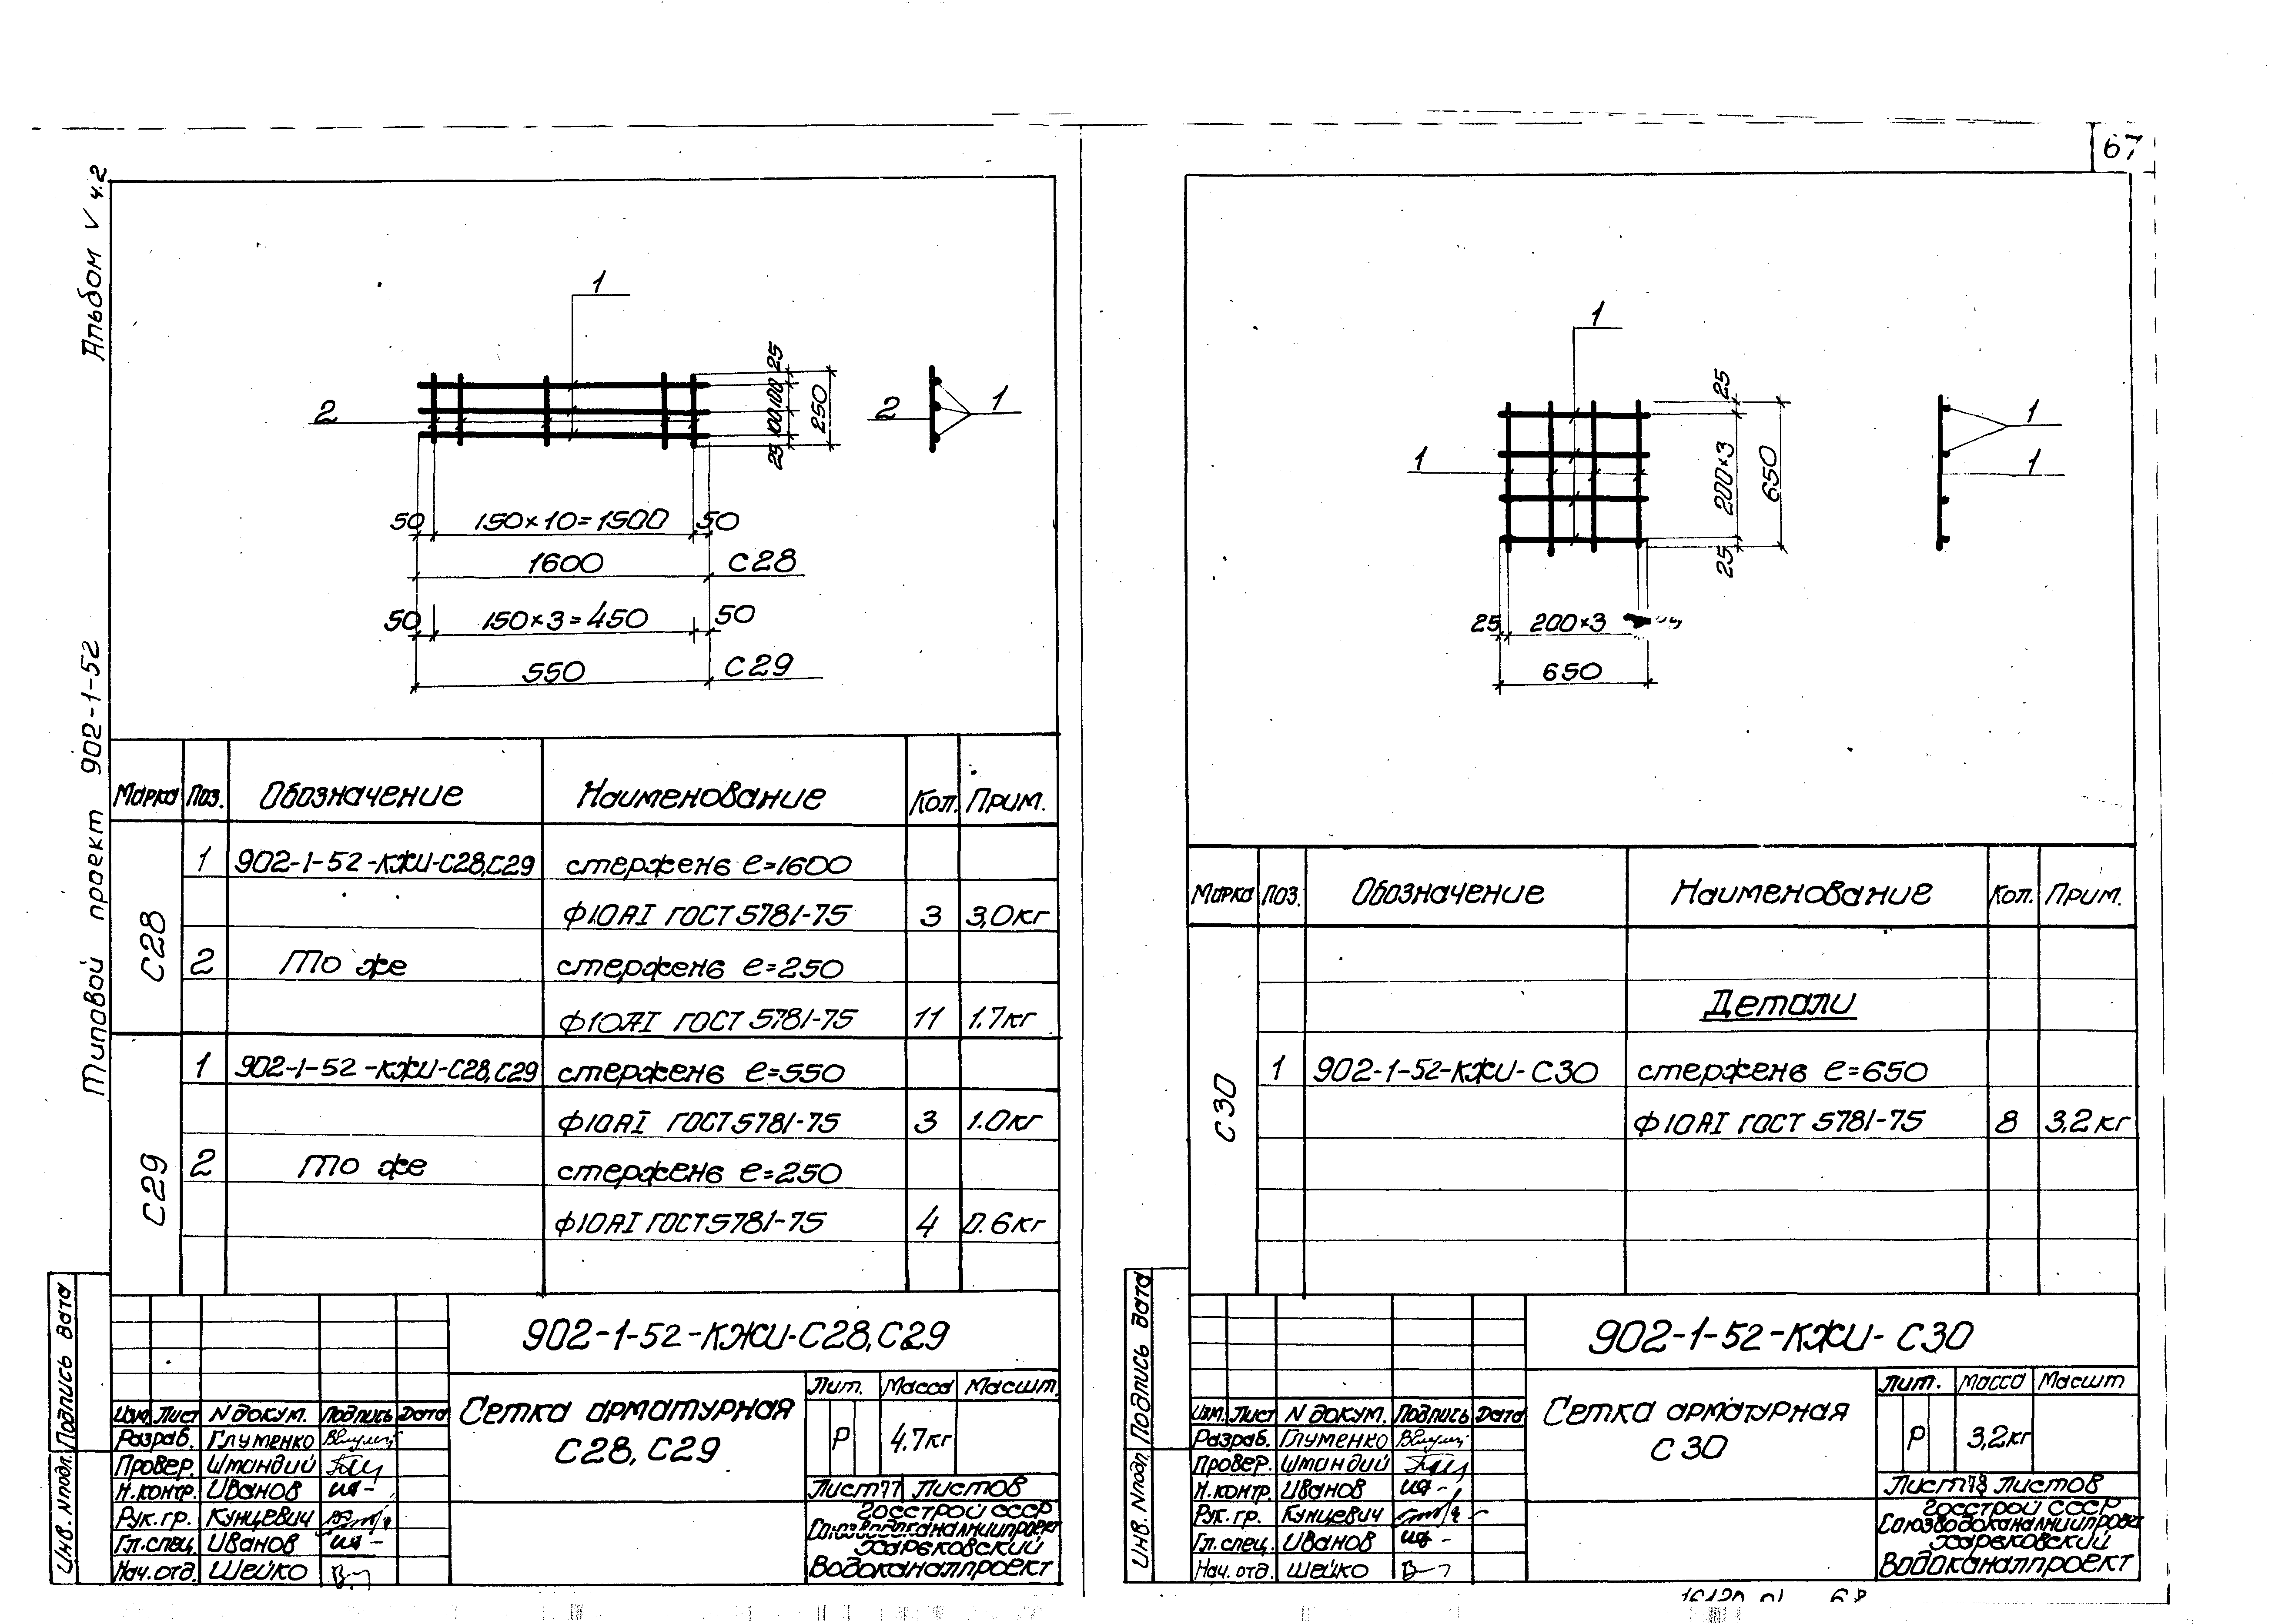 67
Альбом V ч.2
Типовой проект 902-1-52
1
2
25
100
100
25
250
2
1
50 150×10=1500 50
1600 С28
50 150×3=450 50
550 С29
Марка Поз. Обозначение Наименование Кол. Прим.
С28
1 902-1-52-КЖИ-С28,С29 стержень ℓ=1600
Ф10АI ГОСТ 5781-75 3 3,0кг
2 То же стержень ℓ=250
Ф10АI ГОСТ 5781-75 11 1.7кг
С29
1 902-1-52-КЖИ-С28,С29 стержень ℓ=550
Ф10АI ГОСТ 5781-75 3 1.0кг
2 То же стержень ℓ=250
Ф10АI ГОСТ 5781-75 4 0.6кг
902-1-52-КЖИ-С28,С29
Сетка арматурная
С28, С29
Лит. Масса Масшт.
Р 4.7кг
Лист 77 Листов
Госстрой СССР
Союзводоканалниипроект
Харьковский
Водоканалпроект
Изм. Лист N докум. Подпись Дата
Разраб. Глуменко
Провер. Шмандий
Н.контр. Иванов
Рук.гр. Кунцевич
Гл.спец. Иванов
Нач.отд. Шейко
Инв. N подл. Подпись Дата
1
1
25
200×3
25
650
1
1
25 200×3
650
Марка Поз. Обозначение Наименование Кол. Прим.
С30
Детали
1 902-1-52-КЖИ-С30 стержень ℓ=650
Ф10АI ГОСТ 5781-75 8 3,2кг
902-1-52-КЖИ-С30
Сетка арматурная
С30
Лит. Масса Масшт
Р 3,2кг
Лист 78 Листов
Госстрой СССР
Союзводоканалниипроект
Харьковский
Водоканалпроект
Изм. Лист N докум. Подпись Дата
Разраб. Глуменко
Провер. Шмандий
Н.контр. Иванов
Рук.гр. Кунцевич
Гл.спец. Иванов
Нач.отд. Шейко
Инв. N подл. Подпись Дата
68